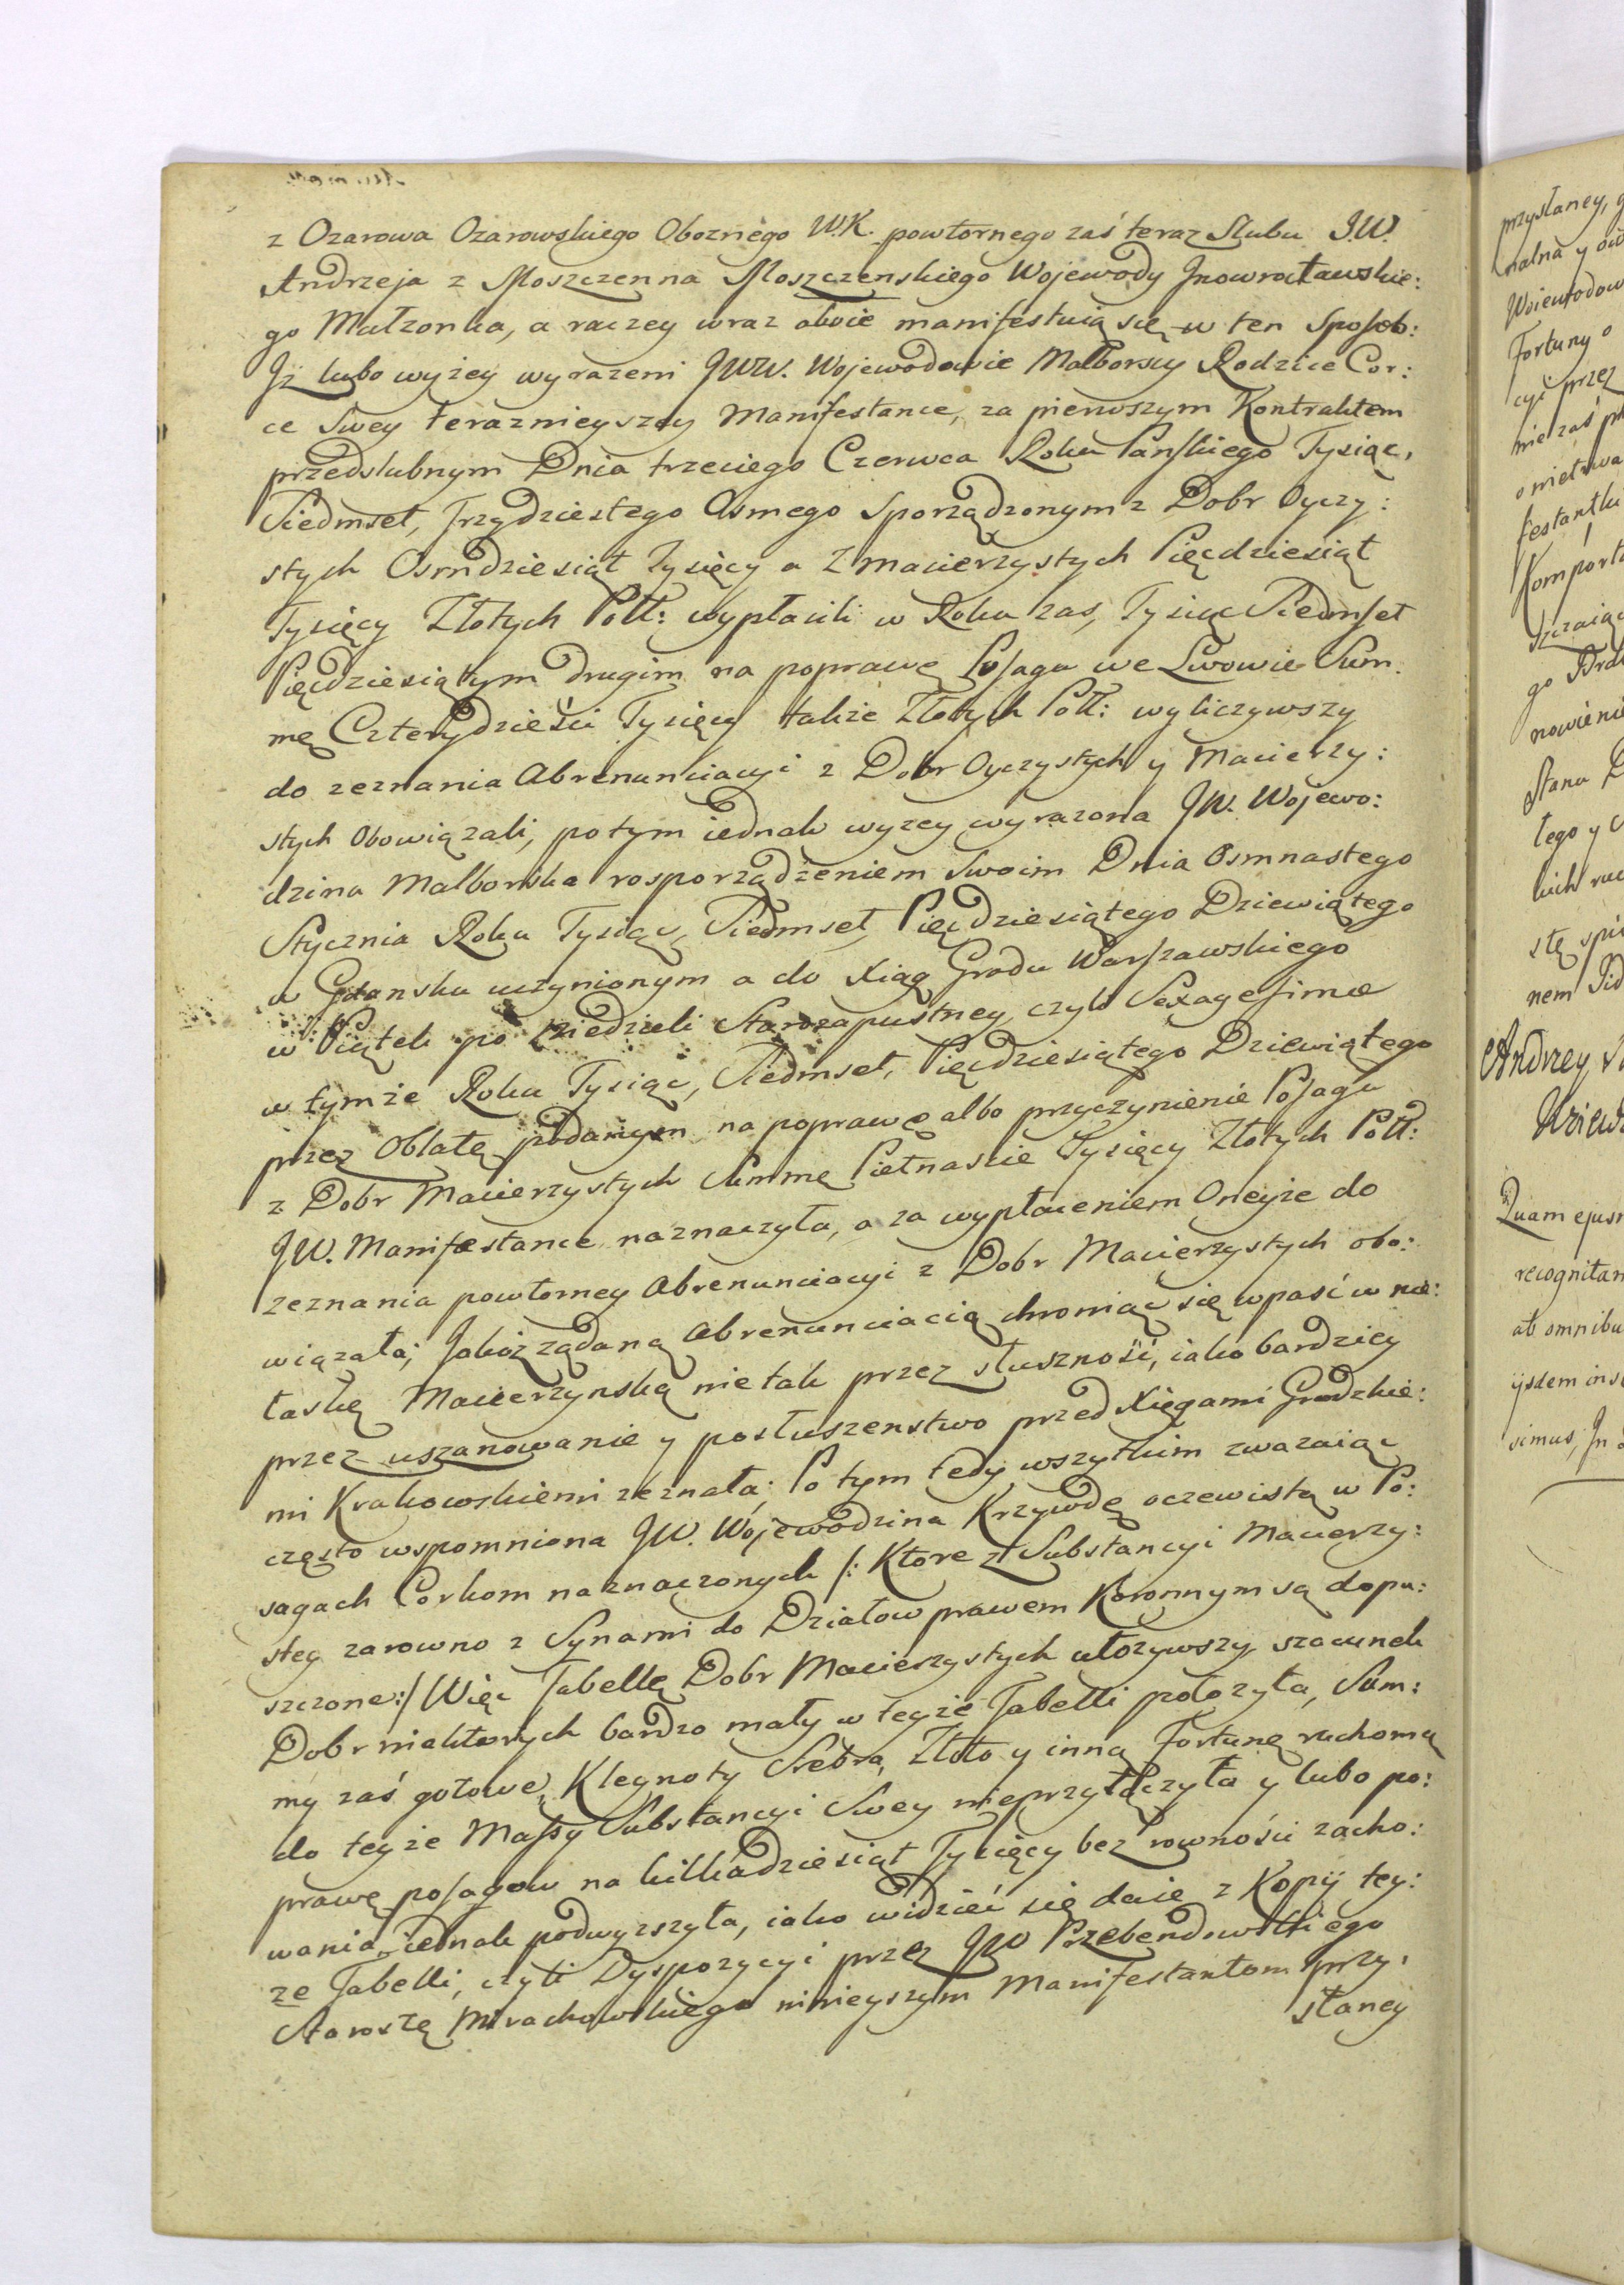 z Ozarowa Ozarowskiego Oboznego W.K. powtornego zaś teraz Slubu J.W.
Andrzeja z Moszczenna Moszczenskiego Wojewody Jnowrocławskie:
go Małzonka, a raczey wraz oboie manifestuią się w ten Sposob:
Jż lubo wyżey wyrazeni JWW. Wojewodowie Malborscy Rodzice Cor:
ce Swey terazniejszey Manifestance, za pierwszym Kontraktem
przedslubnym Dnia trzeciego Czerwca Roku Panskiego Tysiąc,
Siedmset, Trzydziestego Osmego Sporządzonym z Dobr Oyczy:
stych Osmdziesiąt Tysięcy a z macierzystych Pięcdziesiąt
Tysięcy Złotych Poll: wypłacili w Roku zas, Tysiąc Siedmset
Pięcdziesiątym drugim na poprawę Posagu we Lwowie Sum
mę Czterydzieści Tysięcy także Złotych Poll: wyliczywszy
do zeznania Abrenunciacyi z Dobr Oyczystych y Macierzy:
stych obowiązali, potym iednak wyzey wyrazona JW. Wojewo:
dzina Malborska rosporządzeniem Swoim Dnia Osmnastego
Stycznia Roku Tysiąc, Siedmset, Pięcdziesiątego Dziewiątego
w Gdansku uczynionym a do Xiąg Grodu Warszawskiego
w Piątek po Niedzieli Starozapustney czyli Sexagesimæ
w tymże Roku Tysiąc, Siedmset, Pięcdziesiątego Dziewiątego
przez Oblatę podanym na poprawę albo przyczynienie Posagu
z Dobr Macierzystych Summę Pietnascie Tysięcy Złotych Poll:
JW. Manifestance naznaczyła, a za wypłaceniem Oneyże do
zeznania powtorney Abrenunciacyi z Dobr Macierzystych obo:
wiązała; Jakoż ządaną Abrenunciacią chroniąc się wpaść w nie:
łaskę Macierzynską nie tak przez słuszność, iako bardziey
przez uszanowanie y posłuszenstwo przed Xięgami Grodzkie:
mi Krakowskiemi zeznała; Po tym tedy wszytkim zwazaiąc
często wspomniona JW. Wojewodzina Krzywdę oczewistą w Po:
sagach Corkom naznaczonych /: Ktore z Substancyi Macierzy:
stey zarowno z Synami do Działow prawem Koronnym są dopu:
szczone:/ Więc Tabellę Dobr Macierzystych ułozywszy, szacunek
Dobr niektorych bardzo mały w teyże Tabelli połozyła, Sum:
my zaś gotowe, Kleynoty Srebra, Złoto y inną Fortunę ruchomą
do teyże Massy Substancyi Swey nieprzyłączyła y lubo po:
prawę posagow na kilkadziesiąt Tysięcy bez rowności zacho:
wania iednak podwyzszyła, iako widzieć się daie z Kopij tey:
ze Tabelli, czyli Dyspozycyi przez JW Przebendowskiego
Starostę Mirachowskiego ninieyszym Manifestantom przy,
słaney
przysłaney,
Fortuny o
cyi przez
nie zaś
Stanu
tego y
nem
Andrzey
Quam ejus
recognitam
ab omnibus
simus, Jn